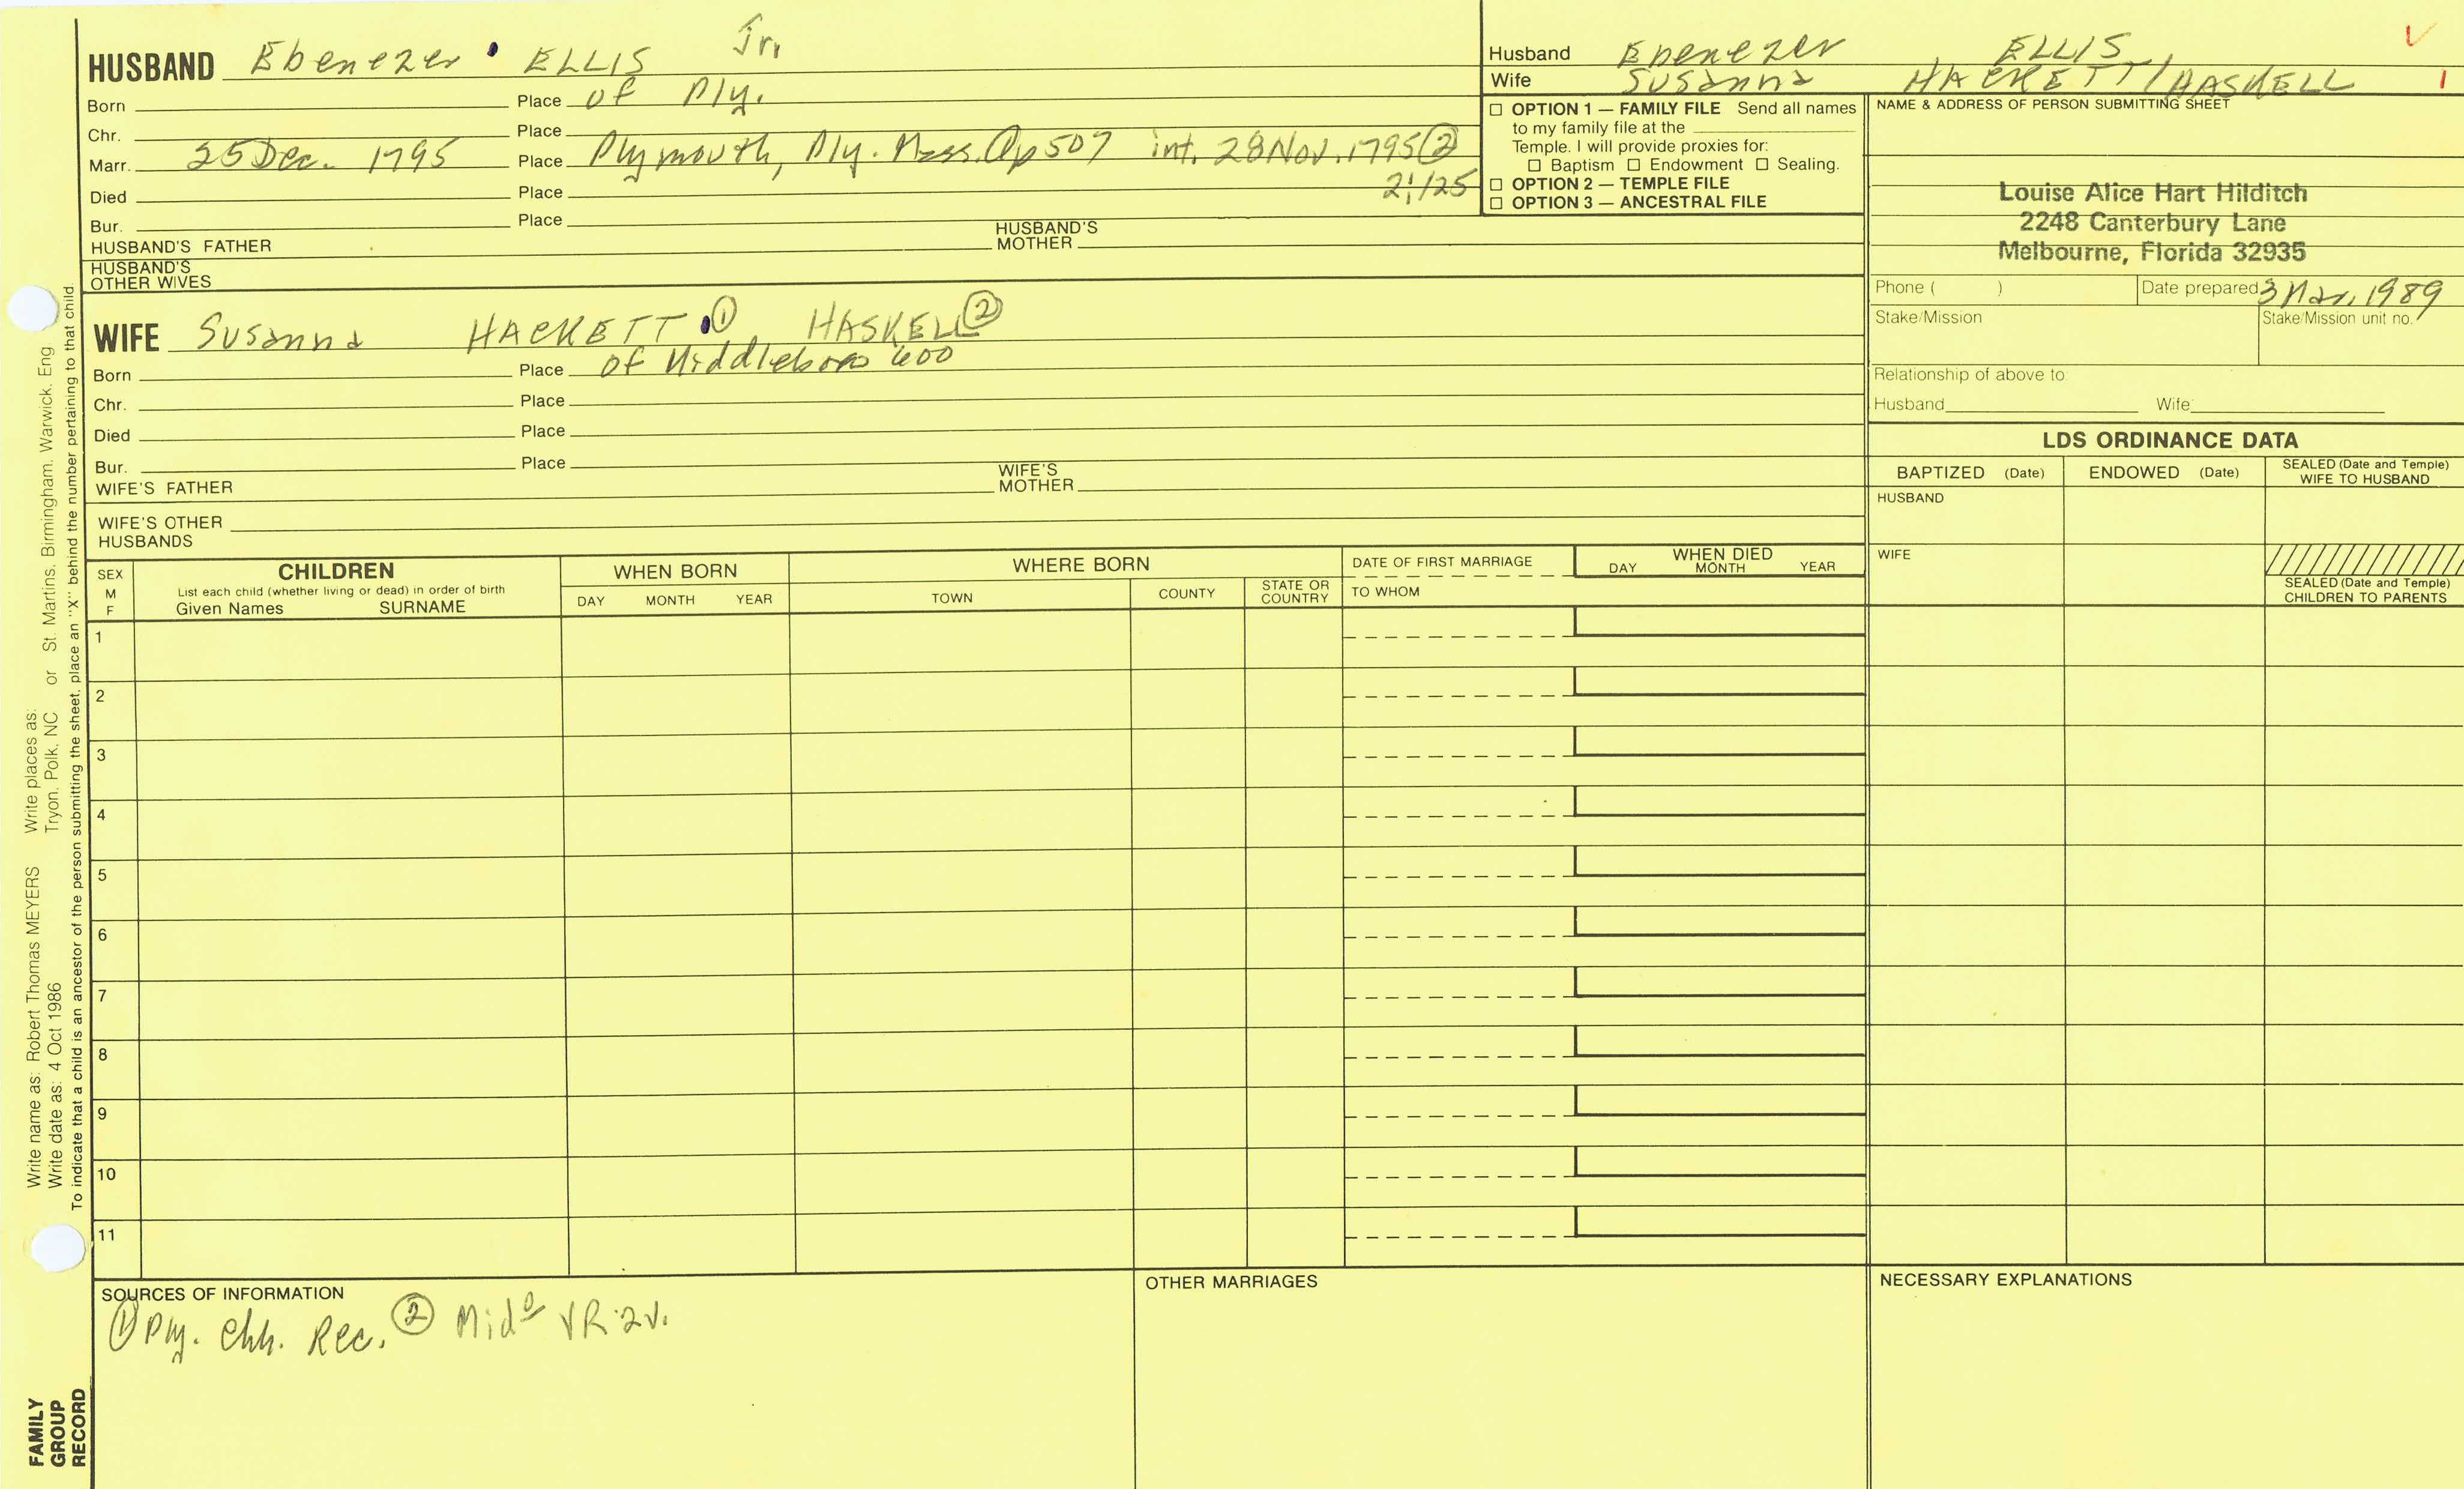 HUSBAND Ebenezer ELLIS Jr.
Born Place of Ply.
Chr. Place
Marr. 25 Dec. 1795 Place Plymouth, Ply. Mass. ① p 507 int. 28 Nov. 1795 ②
Died Place 2:125
Bur. Place
HUSBAND'S FATHER HUSBAND'S MOTHER
HUSBAND'S OTHER WIVES
WIFE Susanna HACKETT ① HASKELL ②
Born Place of Middleboro
Chr. Place
Died Place
Bur. Place
WIFE'S FATHER WIFE'S MOTHER
WIFE'S OTHER HUSBANDS
Husband Ebenezer ELLIS
Wife Susanna HACKETT/HASKELL 1
☐ OPTION 1 — FAMILY FILE Send all names
to my family file at the
Temple. I will provide proxies for:
☐ Baptism ☐ Endowment ☐ Sealing.
☐ OPTION 2 — TEMPLE FILE
☐ OPTION 3 — ANCESTRAL FILE
NAME & ADDRESS OF PERSON SUBMITTING SHEET
Louise Alice Hart Hilditch
2248 Canterbury Lane
Melbourne, Florida 32935
Phone ( ) Date prepared 3 Mar. 1989
Stake/Mission Stake/Mission unit no.
Relationship of above to
Husband Wife
LDS ORDINANCE DATA
BAPTIZED (Date) ENDOWED (Date) SEALED (Date and Temple) WIFE TO HUSBAND
HUSBAND
WIFE
SEALED (Date and Temple)
CHILDREN TO PARENTS
SEX M F
CHILDREN
List each child (whether living or dead) in order of birth
Given Names SURNAME
WHEN BORN
DAY MONTH YEAR
WHERE BORN
TOWN COUNTY STATE OR COUNTRY
DATE OF FIRST MARRIAGE
TO WHOM
WHEN DIED
DAY MONTH YEAR
1
2
3
4
5
6
7
8
9
10
11
SOURCES OF INFORMATION
① Ply. Chh. Rec. ② Mid⁰ VR 2v.
OTHER MARRIAGES
NECESSARY EXPLANATIONS
Write name as: Robert Thomas MEYERS Write places as:
Write date as: 4 Oct 1986 Tryon. Polk. NC or St. Martins. Birmingham. Warwick. Eng
To indicate that a child is an ancestor of the person submitting the sheet, place an "X" behind the number pertaining to that child
FAMILY
GROUP
RECORD